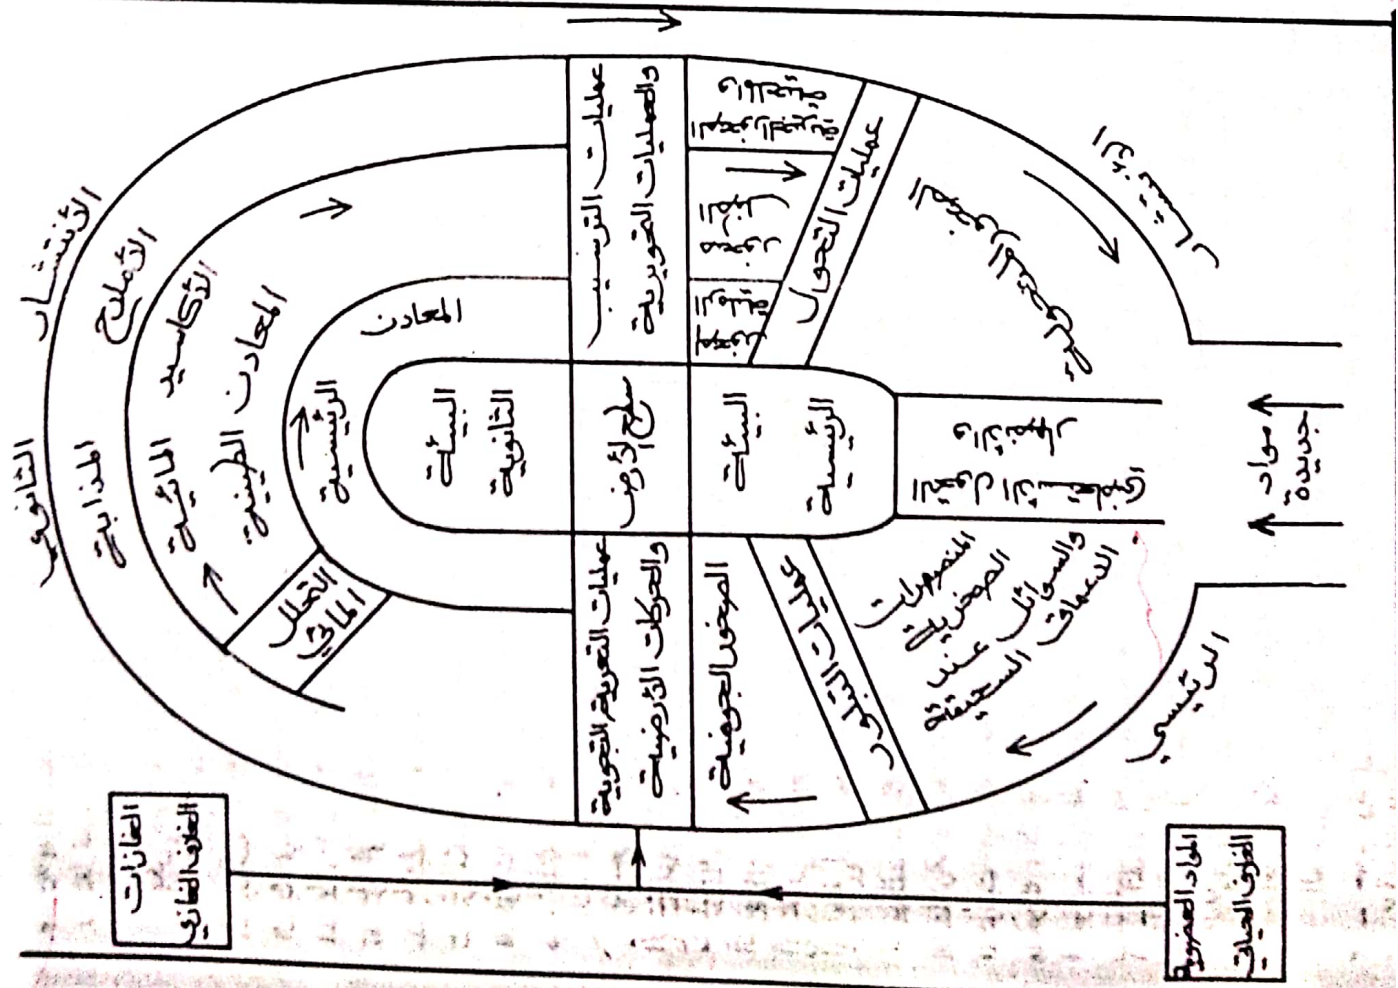 الأنتشار
الثانوي
الأملاح
المذابة
الأكاسيد
المائية
المعادن الطينية
المعادن
الرئيسية
التحلل
المائي
البيئات
الثانوية
سطح الأرض
البيئات
الرئيسية
عمليات الترسيب
والعمليات التحويرية
عمليات التعرية والتجوية
والحركات الأرضية
الصخور الجيرية
والملحية
صخور
الطفل
الصخور
الرملية
عمليات التحول
الصخور المتحولة
الصخور الجوفية
عمليات التبلور
المنصهرات
الصخرية
والسوائل عند
الأعماق السحيقة
التحول الأستعاضي
والانصهار
مواد
جديدة
الأنتشار
الرئيسي
الغازات
الغلاف الغازي
المواد العضوية
الغلاف الحياتي